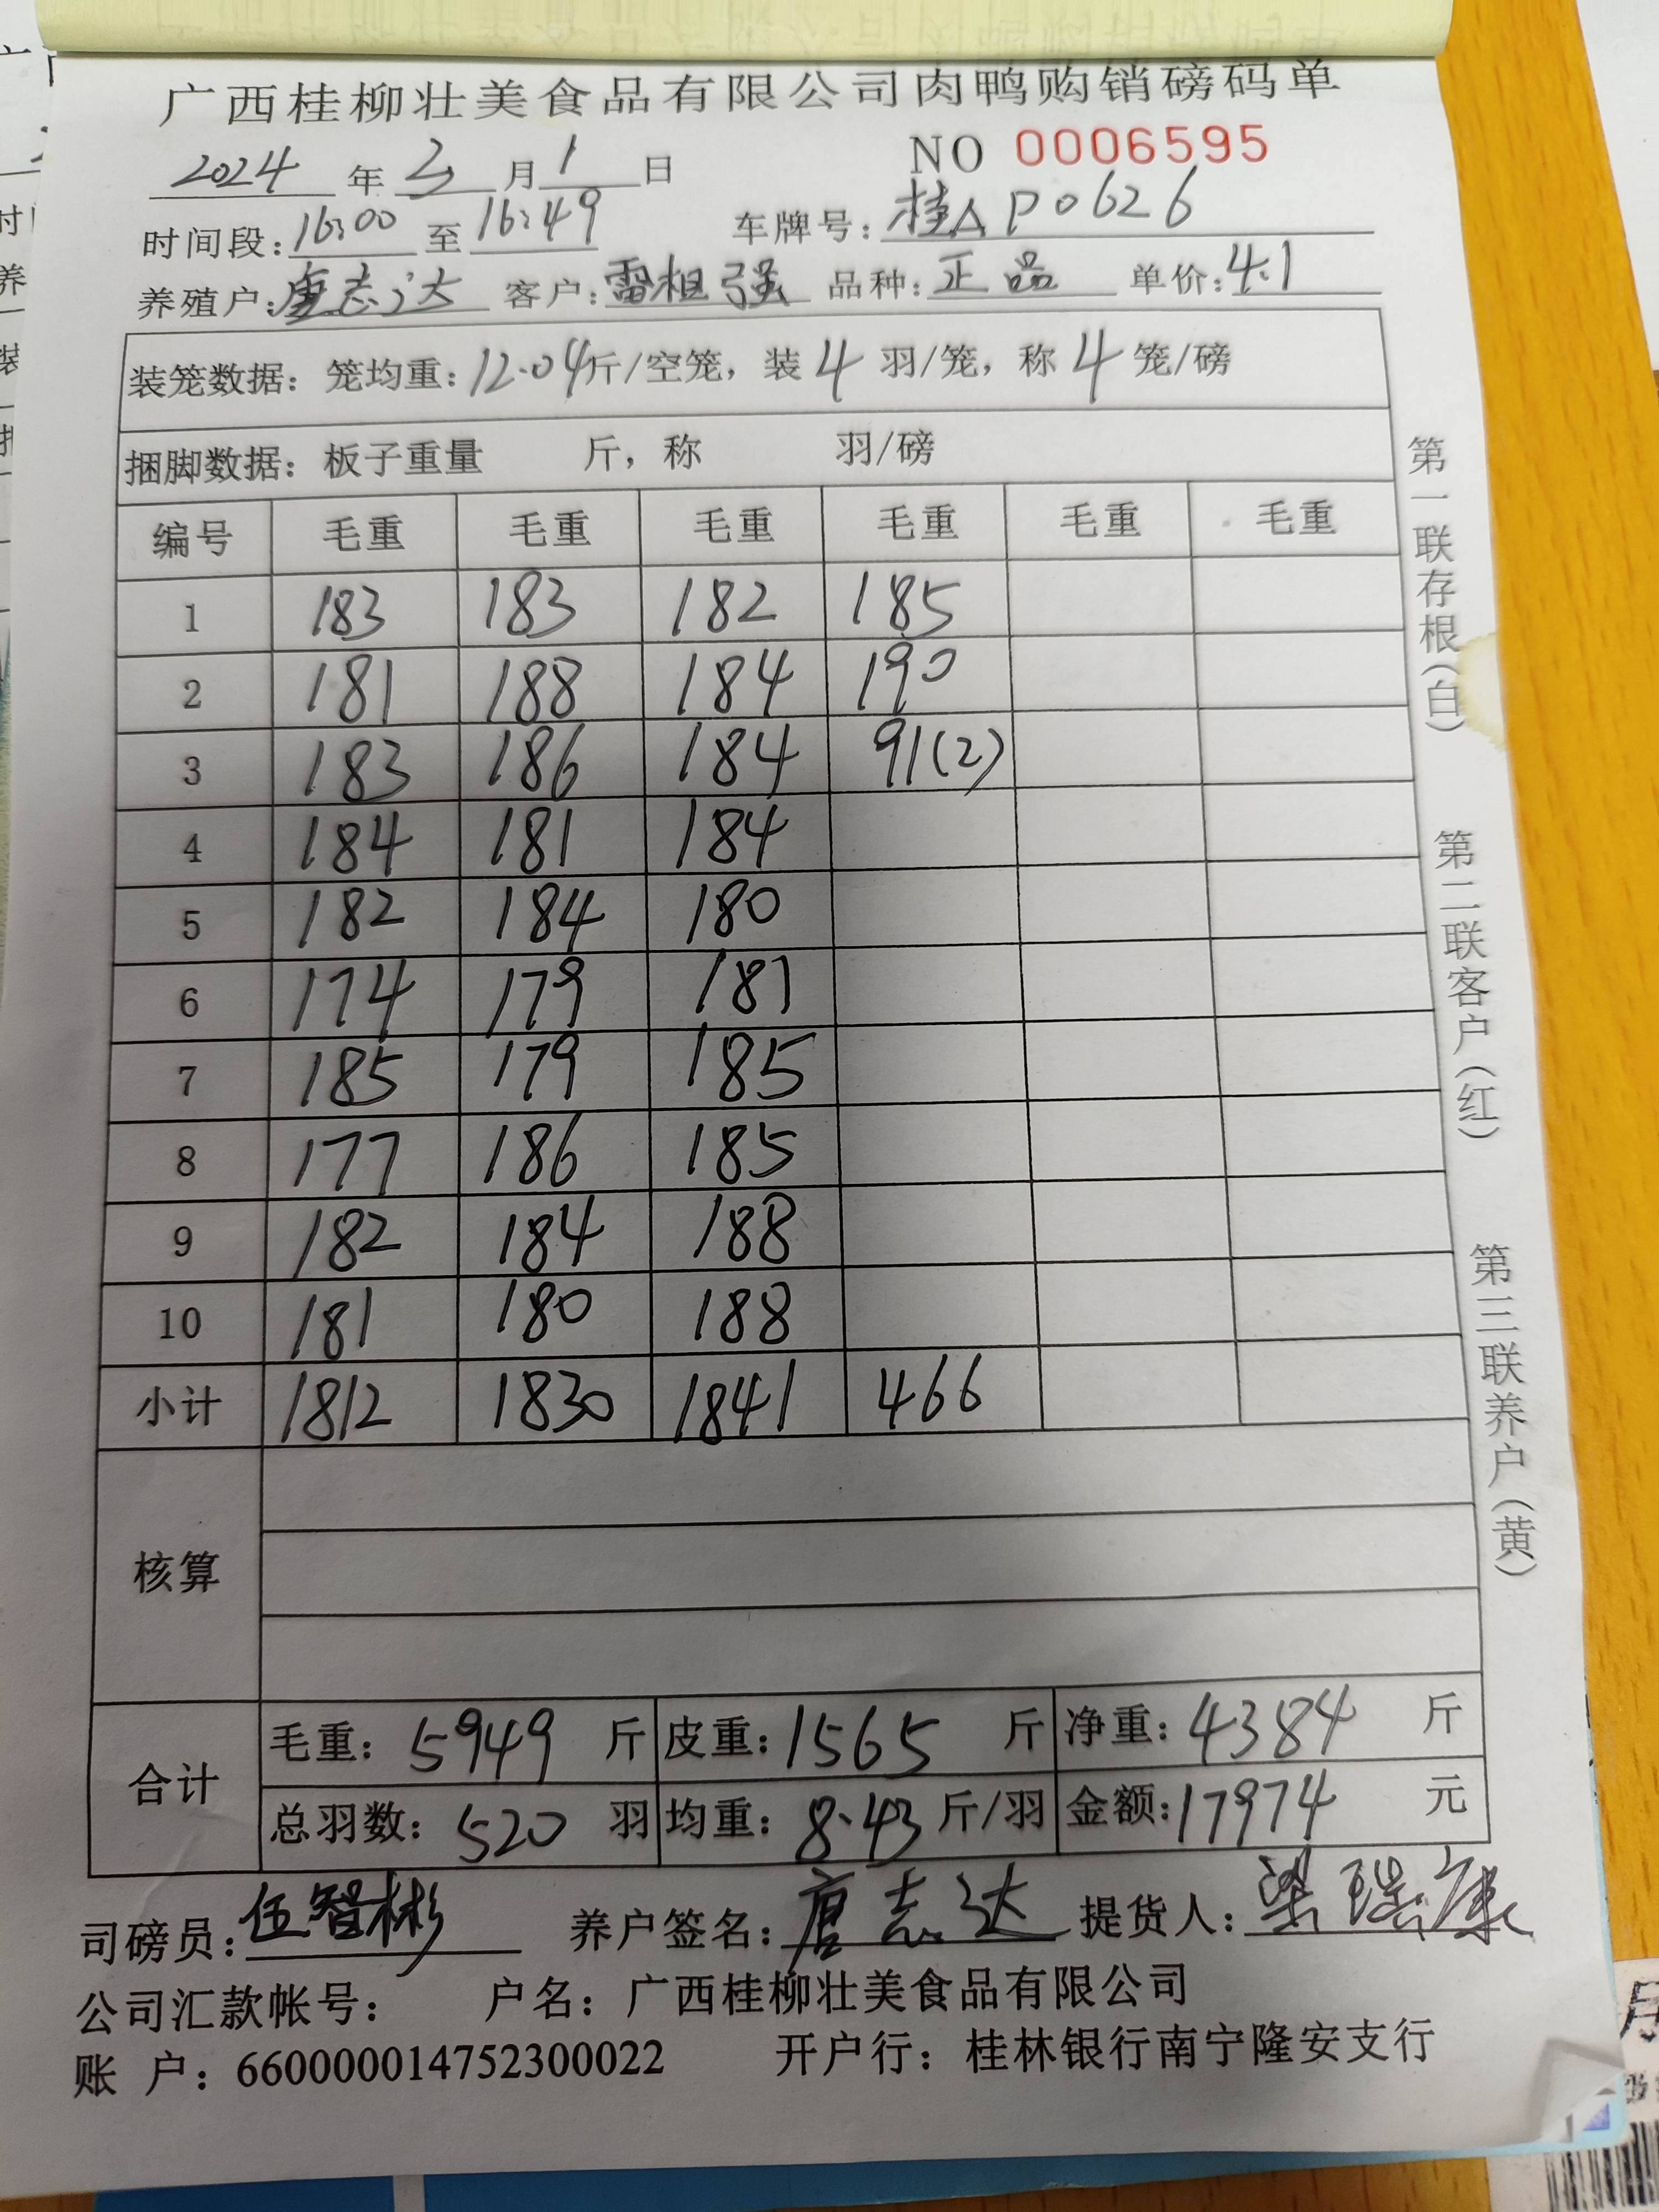 广西桂柳壮美食品有限公司肉鸭购销磅码单
NO 0006595
2024 年 3 月 1 日
时间段:16:00 至 16:49 车牌号:桂AP0626
养殖户:唐志达 客户:雷祖强 品种:正品 单价:4.1
装笼数据：笼均重:12.04斤/空笼，装 4 羽/笼，称 4 笼/磅
捆脚数据：板子重量 斤，称 羽/磅
编号 毛重 毛重 毛重 毛重 毛重 毛重
1 183 183 182 185
2 181 188 184 190
3 183 186 184 91(2)
4 184 181 184
5 182 184 180
6 174 179 181
7 185 179 185
8 177 186 185
9 182 184 188
10 181 180 188
小计 1812 1830 1841 466
核算
合计
毛重: 5949 斤 皮重:1565 斤 净重:4384 斤
总羽数: 520 羽 均重: 8.43 斤/羽 金额:17974 元
司磅员:伍智彬 养户签名:唐志达 提货人:梁瑞康
公司汇款帐号： 户名：广西桂柳壮美食品有限公司
账 户：660000014752300022 开户行：桂林银行南宁隆安支行
第一联存根(白)
第二联客户(红)
第三联养户(黄)